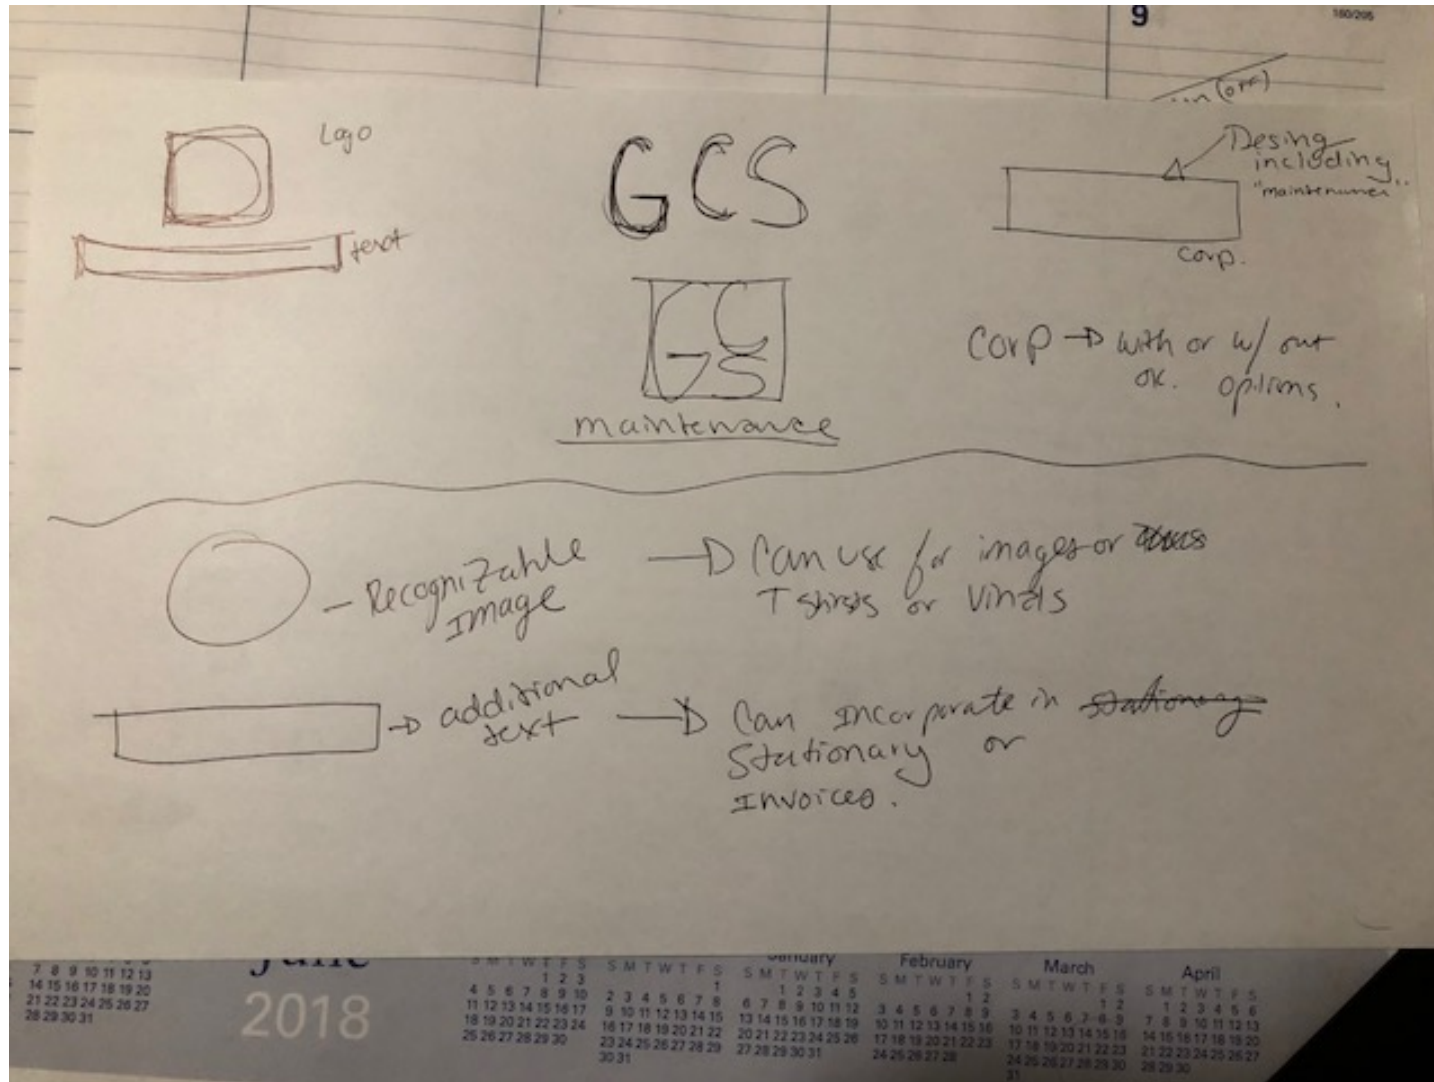 9
160/205
(OFF)
Logo
text
GCS
GCS
maintenance
Desing
including
"maintenance"
corp.
Corp → with or w/out
ok. options.
- Recognizable
Image
→ Can use for images or
T shirts or Vinals
→ additional
text
→ Can Incorporate in stationary
Stationary or
Invoices.
June
2018
7 8 9 10 11 12 13
14 15 16 17 18 19 20
21 22 23 24 25 26 27
28 29 30 31
S M T W T F S
1 2 3
4 5 6 7 8 9 10
11 12 13 14 15 16 17
18 19 20 21 22 23 24
25 26 27 28 29 30
S M T W T F S
1
2 3 4 5 6 7 8
9 10 11 12 13 14 15
16 17 18 19 20 21 22
23 24 25 26 27 28 29
30 31
January
S M T W T F S
1 2 3 4 5
6 7 8 9 10 11 12
13 14 15 16 17 18 19
20 21 22 23 24 25 26
27 28 29 30 31
February
S M T W T F S
1 2
3 4 5 6 7 8 9
10 11 12 13 14 15 16
17 18 19 20 21 22 23
24 25 26 27 28
March
S M T W T F S
1 2
3 4 5 6 7 8 9
10 11 12 13 14 15 16
17 18 19 20 21 22 23
24 25 26 27 28 29 30
31
April
S M T W T F S
1 2 3 4 5 6
7 8 9 10 11 12 13
14 15 16 17 18 19 20
21 22 23 24 25 26 27
28 29 30